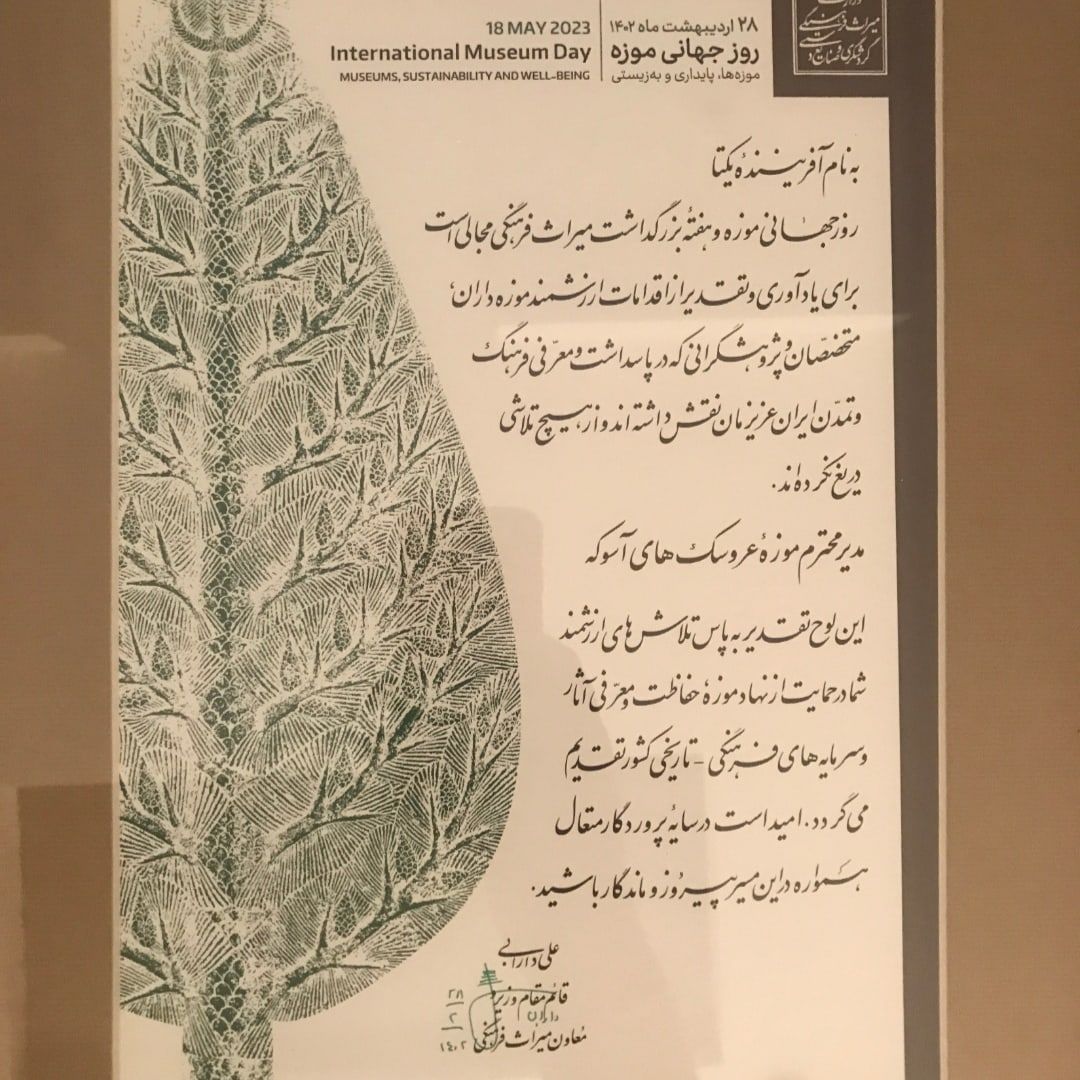 18 MAY 2023
International Museum Day
MUSEUMS, SUSTAINABILITY AND WELL-BEING
۲۸ اردیبهشت ماه ۱۴۰۲
روز جهانی موزه
موزه‌ها، پایداری و به‌زیستی
میراث فرهنگی
گردشگری و صنایع دستی
به نام آفرینندهٔ یکتا
روز جهانی موزه و هفتهٔ بزرگداشت میراث فرهنگی مجالی است
برای یادآوری و تقدیر از اقدامات ارزشمند موزه داران،
متخصّصان و پژوهشگرانی که در پاسداشت و معرّفی فرهنگ
و تمدّن ایران عزیزمان نقش داشته اند و از هیچ تلاشی
دریغ نکرده اند.
مدیر محترم موزهٔ عروسک های آسوکه
این لوح تقدیر به پاس تلاش های ارزشمند
شما در حمایت از نهاد موزهٔ حفاظت و معرّفی آثار
و سرمایه های فرهنگی - تاریخی کشور تقدیم
می گردد. امید است در سایهٔ پروردگار متعال
همواره در این مسیر پیروز و ماندگار باشید.
علی دارابی
قائم مقام وزیر و
معاون میراث فرهنگی
۲۸
۲
۱۴۰۲